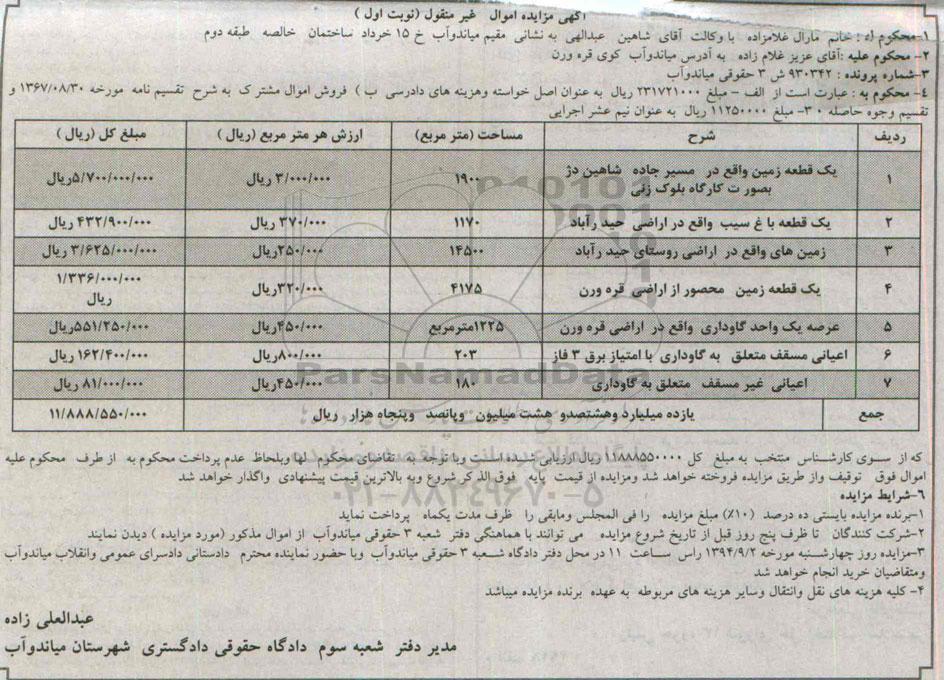 آگهی مزایده اموال غیر منقول (نوبت اول )
۱-محکوم له : خانم مارال غلامزاده با وکالت آقای شاهین عبدالهی به نشانی مقیم میاندوآب خ ۱۵ خرداد ساختمان خالصه طبقه دوم
۲- محکوم علیه :آقای عزیز غلام زاده به آدرس میاندوآب کوی قره ورن
۳-شماره پرونده : ۹۳۰۳۴۲ ش ۳ حقوقی میاندوآب
۴- محکوم به : عبارت است از الف - مبلغ ۲۳۱۷۲۱۰۰۰ ریال به عنوان اصل خواسته وهزینه های دادرسی ب ) فروش اموال مشترک به شرح تقسیم نامه مورخه ۱۳۶۷/۰۸/۳۰ و
تقسیم وجوه حاصله ۳۰- مبلغ ۱۱۲۵۰۰۰۰ ریال به عنوان نیم عشر اجرایی
ردیف شرح مساحت (متر مربع) ارزش هر متر مربع (ریال ) مبلغ کل (ریال )
۱ یک قطعه زمین واقع در مسیر جاده شاهین دژ ۱۹۰۰ ۳/۰۰۰/۰۰۰ ریال ۵/۷۰۰/۰۰۰/۰۰۰ریال
بصورت کارگاه بلوک زنی
۲ یک قطعه با غ سیب واقع در اراضی حید رآباد ۱۱۷۰ ۳۷۰/۰۰۰ ریال ۴۳۲/۹۰۰/۰۰۰ ریال
۳ زمین های واقع در اراضی روستای حید رآباد ۱۴۵۰۰ ۲۵۰/۰۰۰ریال ۳/۶۲۵/۰۰۰/۰۰۰ ریال
۴ یک قطعه زمین محصور از اراضی قره ورن ۴۱۷۵ ۳۲۰/۰۰۰ریال ۱/۳۳۶/۰۰۰/۰۰۰
ریال
۵ عرصه یک واحد گاوداری واقع در اراضی قره ورن ۱۲۲۵مترمربع ۴۵۰/۰۰۰ریال ۵۵۱/۲۵۰/۰۰۰ریال
۶ اعیانی مسقف متعلق به گاوداری با امتیاز برق ۳ فاز ۲۰۳ ۸۰۰/۰۰۰ریال ۱۶۲/۴۰۰/۰۰۰ ریال
۷ اعیانی غیر مسقف متعلق به گاوداری ۱۸۰ ۴۵۰/۰۰۰ریال ۸۱/۰۰۰/۰۰۰ ریال
جمع یازده میلیارد وهشتصدو هشت میلیون وپانصد وپنجاه هزار ریال ۱۱/۸۸۸/۵۵۰/۰۰۰
ParsNamadData
که از سوی کارشناس منتخب به مبلغ کل ۱۱۸۸۸۵۵۰۰۰۰ ریال ارزیابی شده است وبا توجه به تقاضای محکوم لها وبلحاظ عدم پرداخت محکوم به از طرف محکوم علیه
اموال فوق توقیف واز طریق مزایده فروخته خواهد شد ومزایده از قیمت پایه فوق الذکر شروع وبه بالاترین قیمت پیشنهادی واگذار خواهد شد
۰۲۱-۸۸۳۴۹۶۷۰-۵
۶-شرایط مزایده
۱-برنده مزایده بایستی ده درصد (۱۰٪) مبلغ مزایده را فی المجلس ومابقی را ظرف مدت یکماه پرداخت نماید
۲-شرکت کنندگان تا ظرف پنج روز قبل از تاریخ شروع مزایده می توانند با هماهنگی دفتر شعبه ۳ حقوقی میاندوآب از اموال مذکور (مورد مزایده ) دیدن نمایند
۳-مزایده روز چهارشنبه مورخه ۱۳۹۴/۹/۲ راس ساعت ۱۱ در محل دفتر دادگاه شعبه ۳ حقوقی میاندوآب وبا حضور نماینده محترم دادستانی دادسرای عمومی وانقلاب میاندوآب
ومتقاضیان خرید انجام خواهد شد
۴- کلیه هزینه های نقل وانتقال وسایر هزینه های مربوطه به عهده برنده مزایده میباشد
عبدالعلی زاده
مدیر دفتر شعبه سوم دادگاه حقوقی دادگستری شهرستان میاندوآب